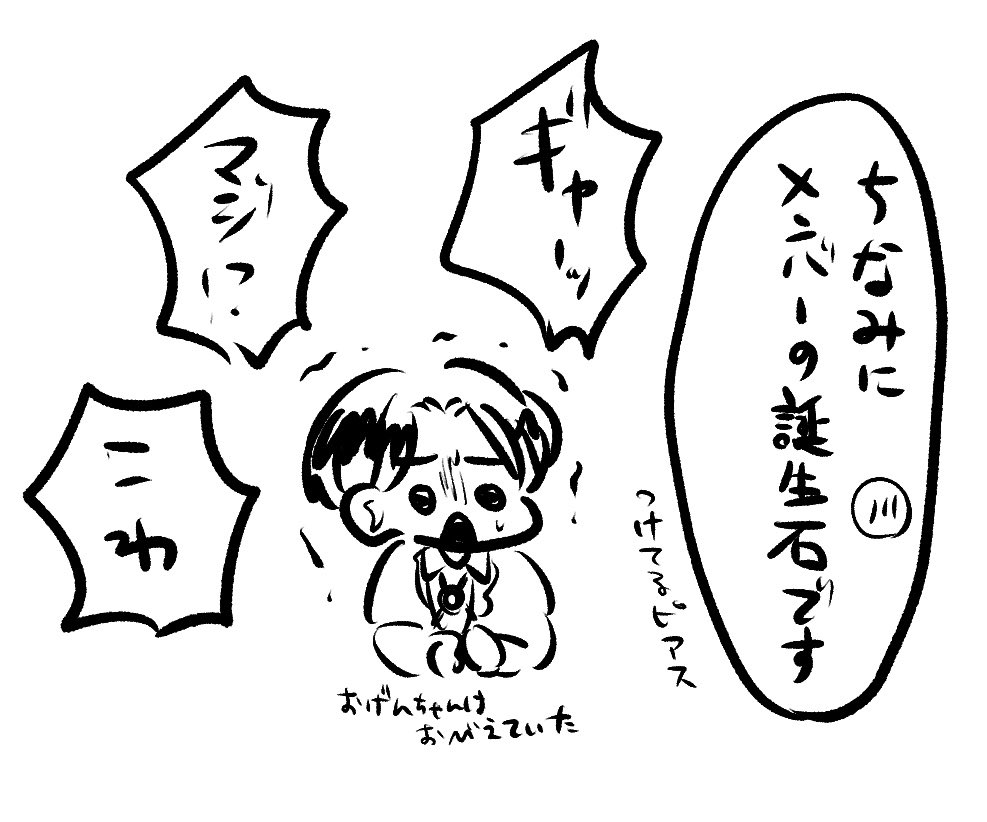 ちなみに
川
メンバーの誕生石です
つけてるピアス
ギャーッ
マジ!?
こわ
おげんちゃんは
おびえていた